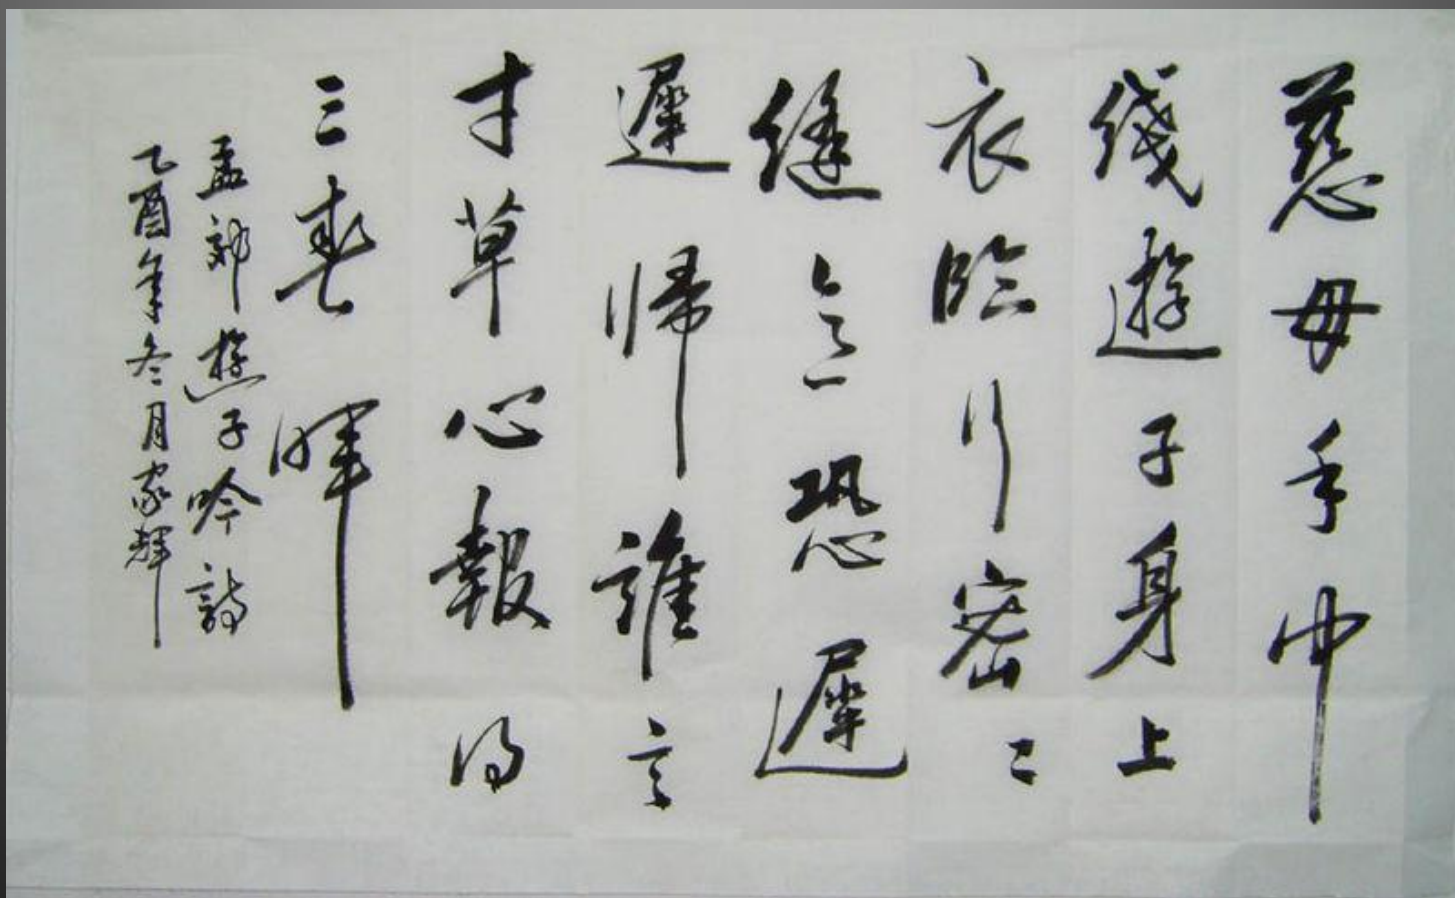 慈母手中
綫遊子身上
衣臨行密々
縫意恐遲
遲歸誰言
寸草心報得
三春暉
孟郊遊子吟詩
乙酉年冬月家輝